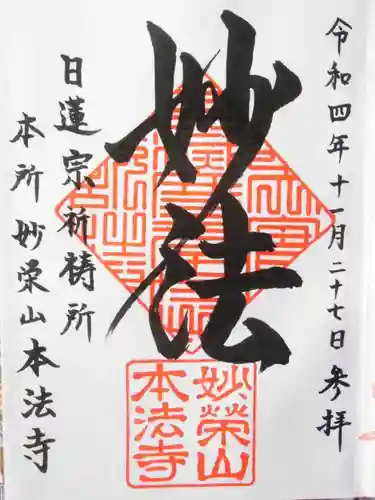 令和四年十一月二十七日参拝
妙法
日蓮宗祈祷所
本所 妙栄山本法寺
妙榮山
本法寺